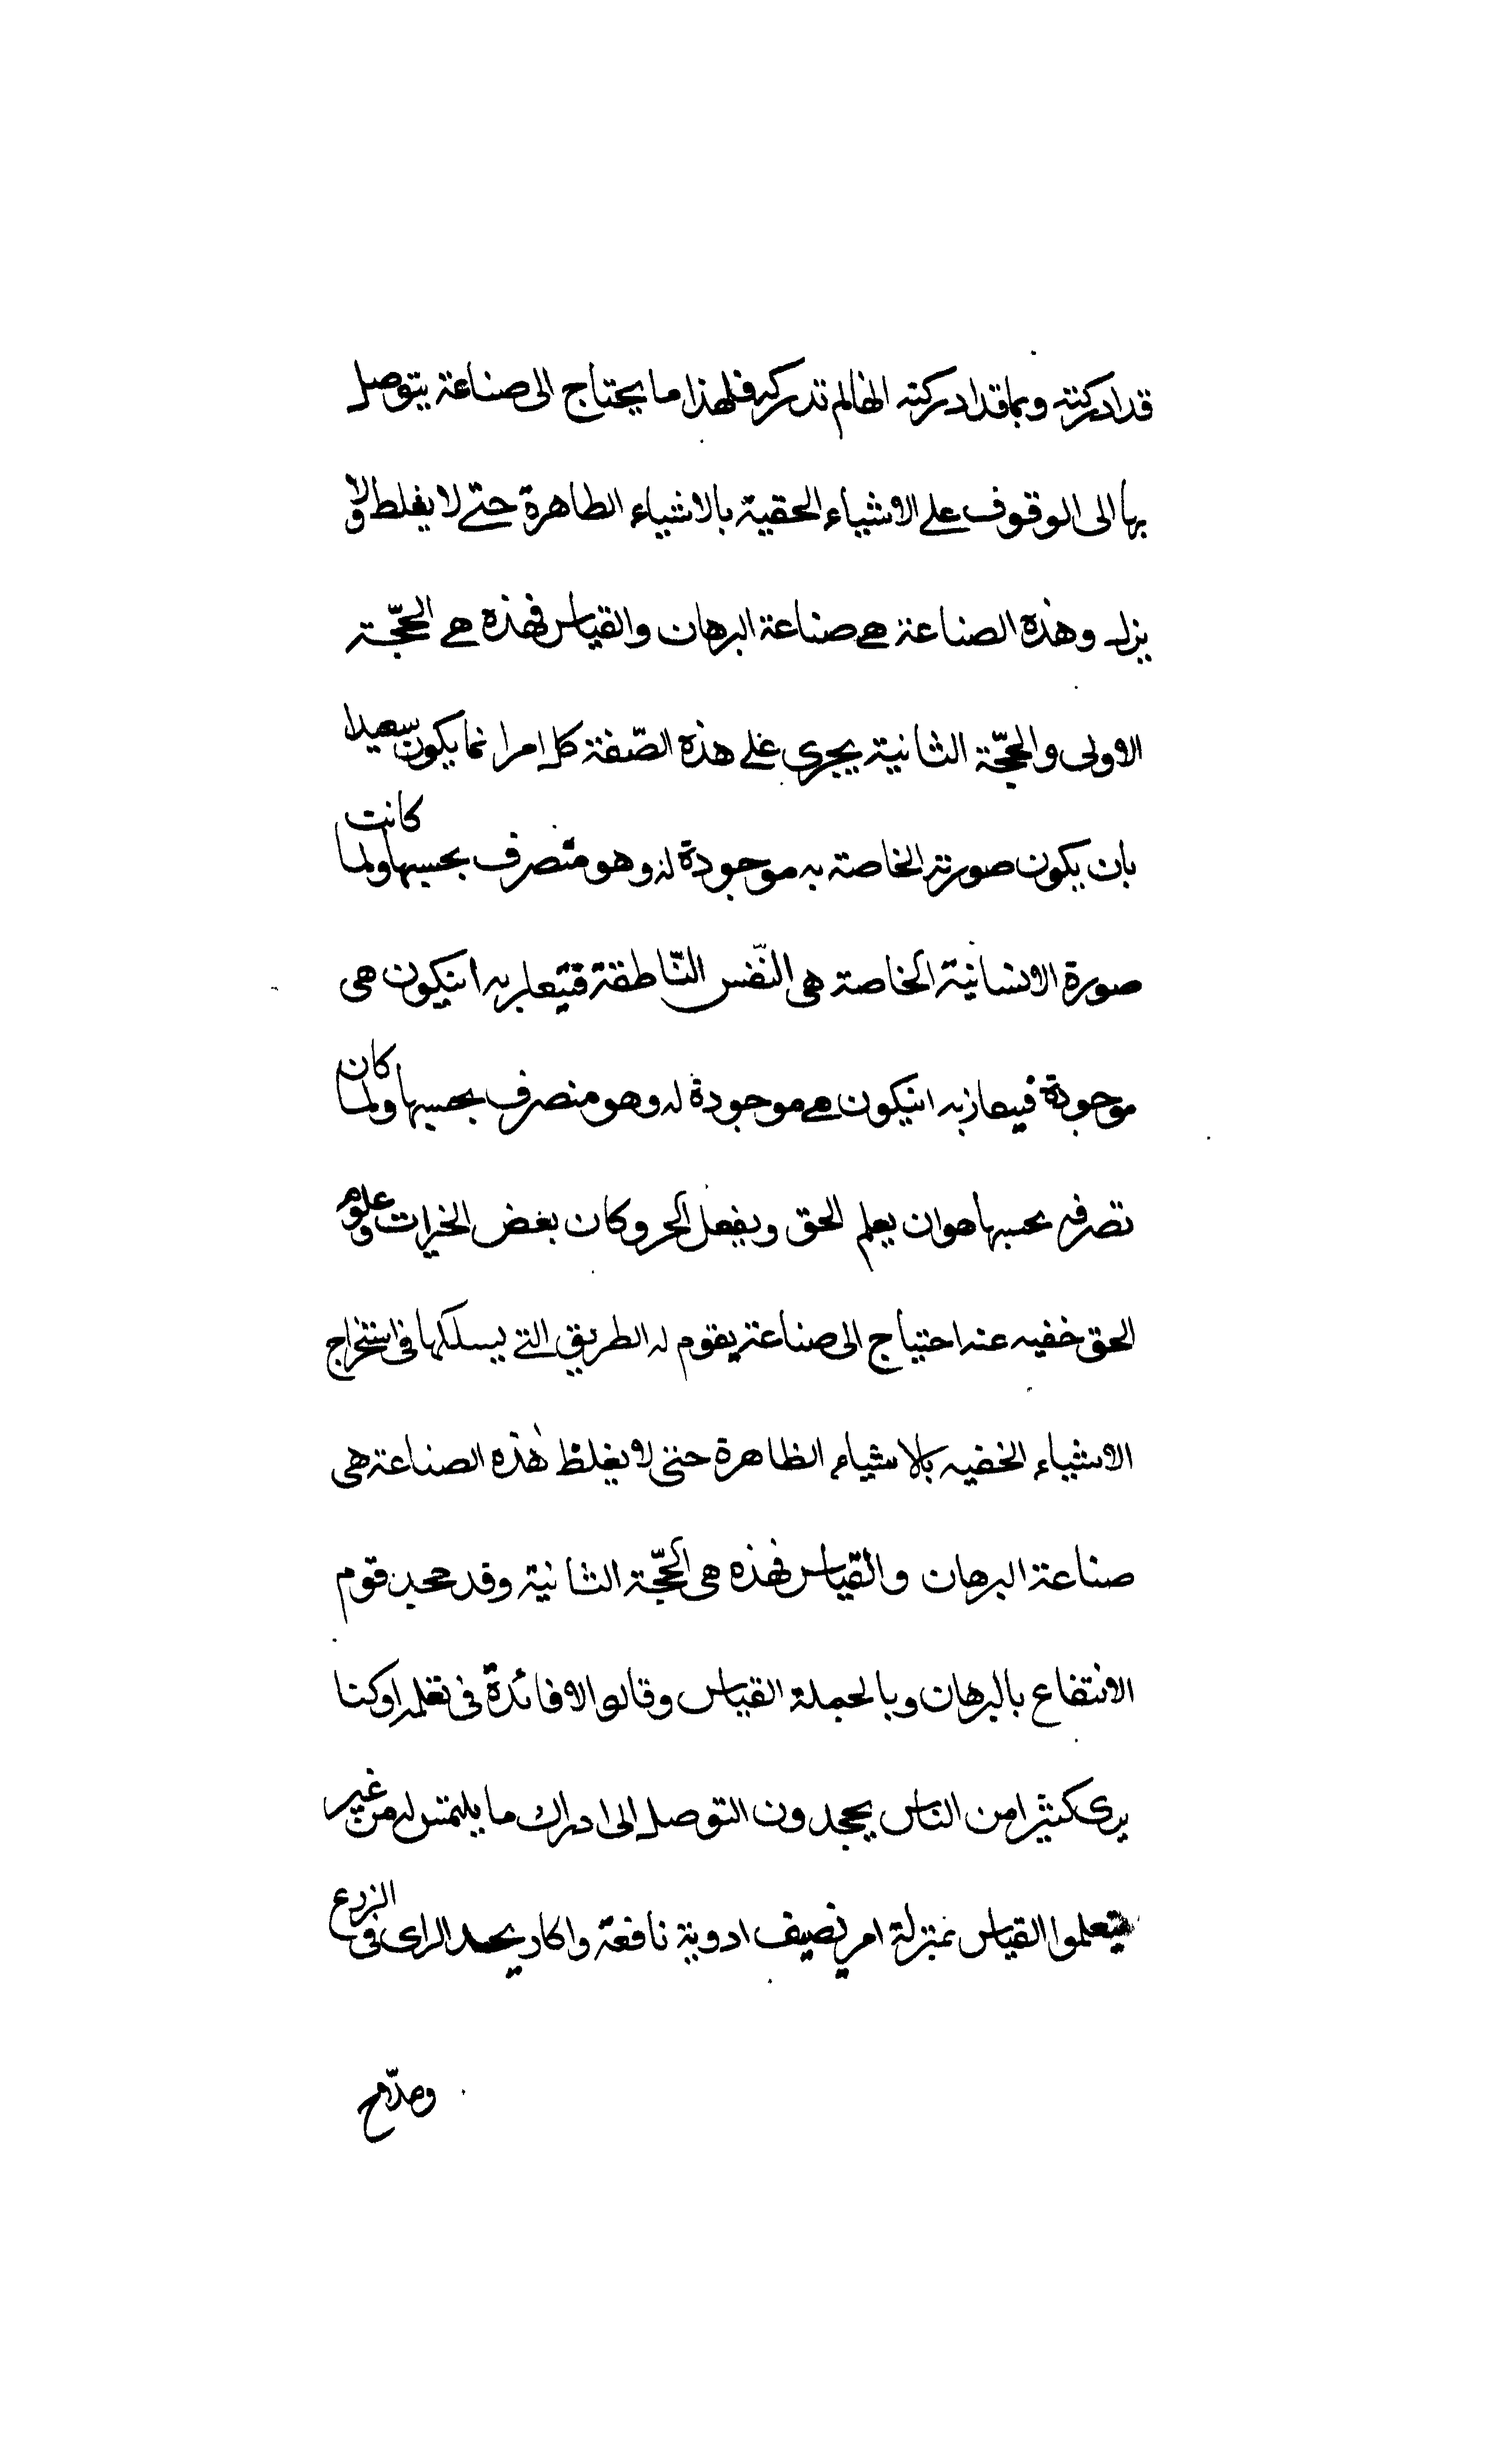 قد ادركته وبما قد ادركته الى ما لم تدركه فلهذا ما يحتاج الى صناعة يتوصل
بها الى الوقوف على الاشياء الحقية بالاشياء الطاهرة حتى لا يغلط ولا
يزل وهذه الصناعة هى صناعة البرهان والقياس فهذه هى الحجّة
الاولى والحجّة الثانية يجرى على هذه الصّفة كل امر انما يكون سعيدا
بان يكون صورته الخاصة به موجودة له وهو متصرف بحسبها ولما كانت
صورة الانسانية الخاصة هى النّفس النّاطقة به انيكون هى
موجودة به انيكون هى موجودة له وهو متصرف بحسبها ولما كان
تصرفه بحسبها هو ان يعلم الحق ويفعل وكان بغض الخيرات وعلوم
الحق خفيه عنه احتياج الى صناعة يقوم له الطريق التى يسلكها فى استخراج
الاشياء الخفيه بالاشياء الظاهرة حتى لا يغلظ هذه الصناعة هى
صناعة البرهان والقياس فهذه هى الحجّة الثانية وقد جحد قوم
الانتفاع بالبرهان وبالجملة القياس وقالوا لا فائدة فى تعلمه اوكنا
يرى كثيرا من الناس يجحدون التوصل الى ادراك ما يلتمس له من غير
يتعلموا القياس بمنزلة امر يصيف ادوية نافعة واكار يحمد الراى فى الزرع